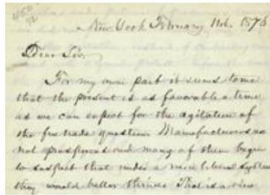 New York February 11th. 1876
Dear Sir,
For my own part it seems to me
that the present is as favorable a time
as we can expect for the agitation of
the free trade question. Manufacturers are
not prosperous and many of them begin
to suspect that under a more liberal system
they would better thrive. That is a view